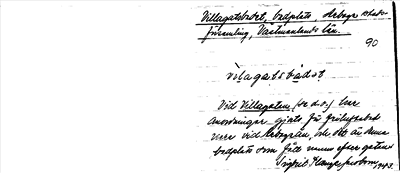 Villagatsbadet, badplats, Arboga stads-
församling, Västmanlands län.
90
vilagatsbadet
Vid Villagatan (se d.o.) har
anordningar gjorts för friluftsbad
vid Arbogaån, och det är denna
badplats som fått namn efter gatan
1943.